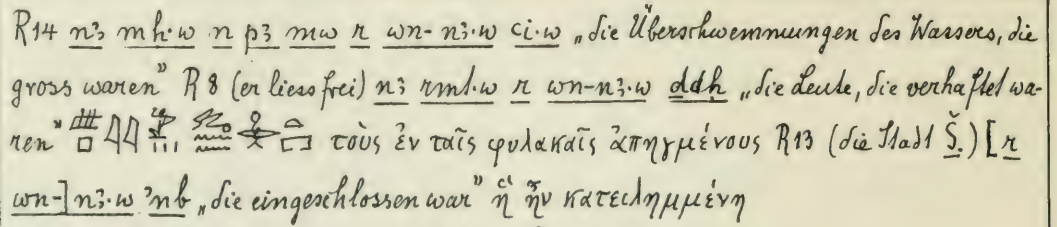 R14 nꜣ mḥ·w n pꜣ mw r wn-nꜣ·w ꜥꜣ·w „die Überschwemmungen des Wassers, die
gross waren" R8 (er liess frei) nꜣ rmt·w r wn-nꜣ·w ddḥ „die Leute, die verhaftet wa-
ren" τοὺς ἐν ταῖς φυλακαῖς ἀπηγμένους R13 (die Stadt Š.) [r
wn-]nꜣ·w ꜣnb „die eingeschlossen war" ἣ ἦν κατειλημμένη